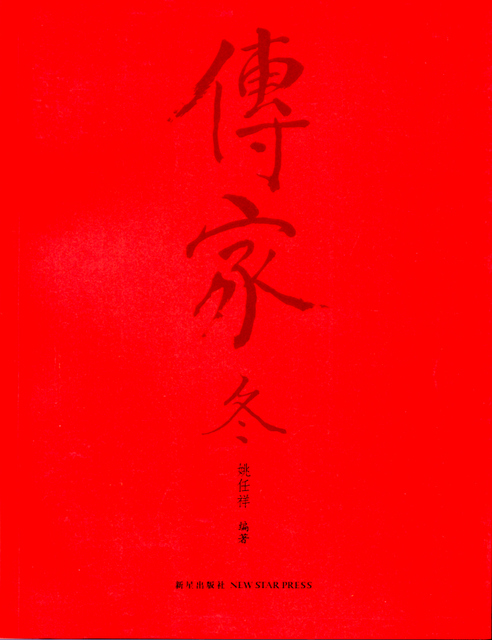 傳家
冬
姚任祥 编著
新星出版社 NEW STAR PRESS